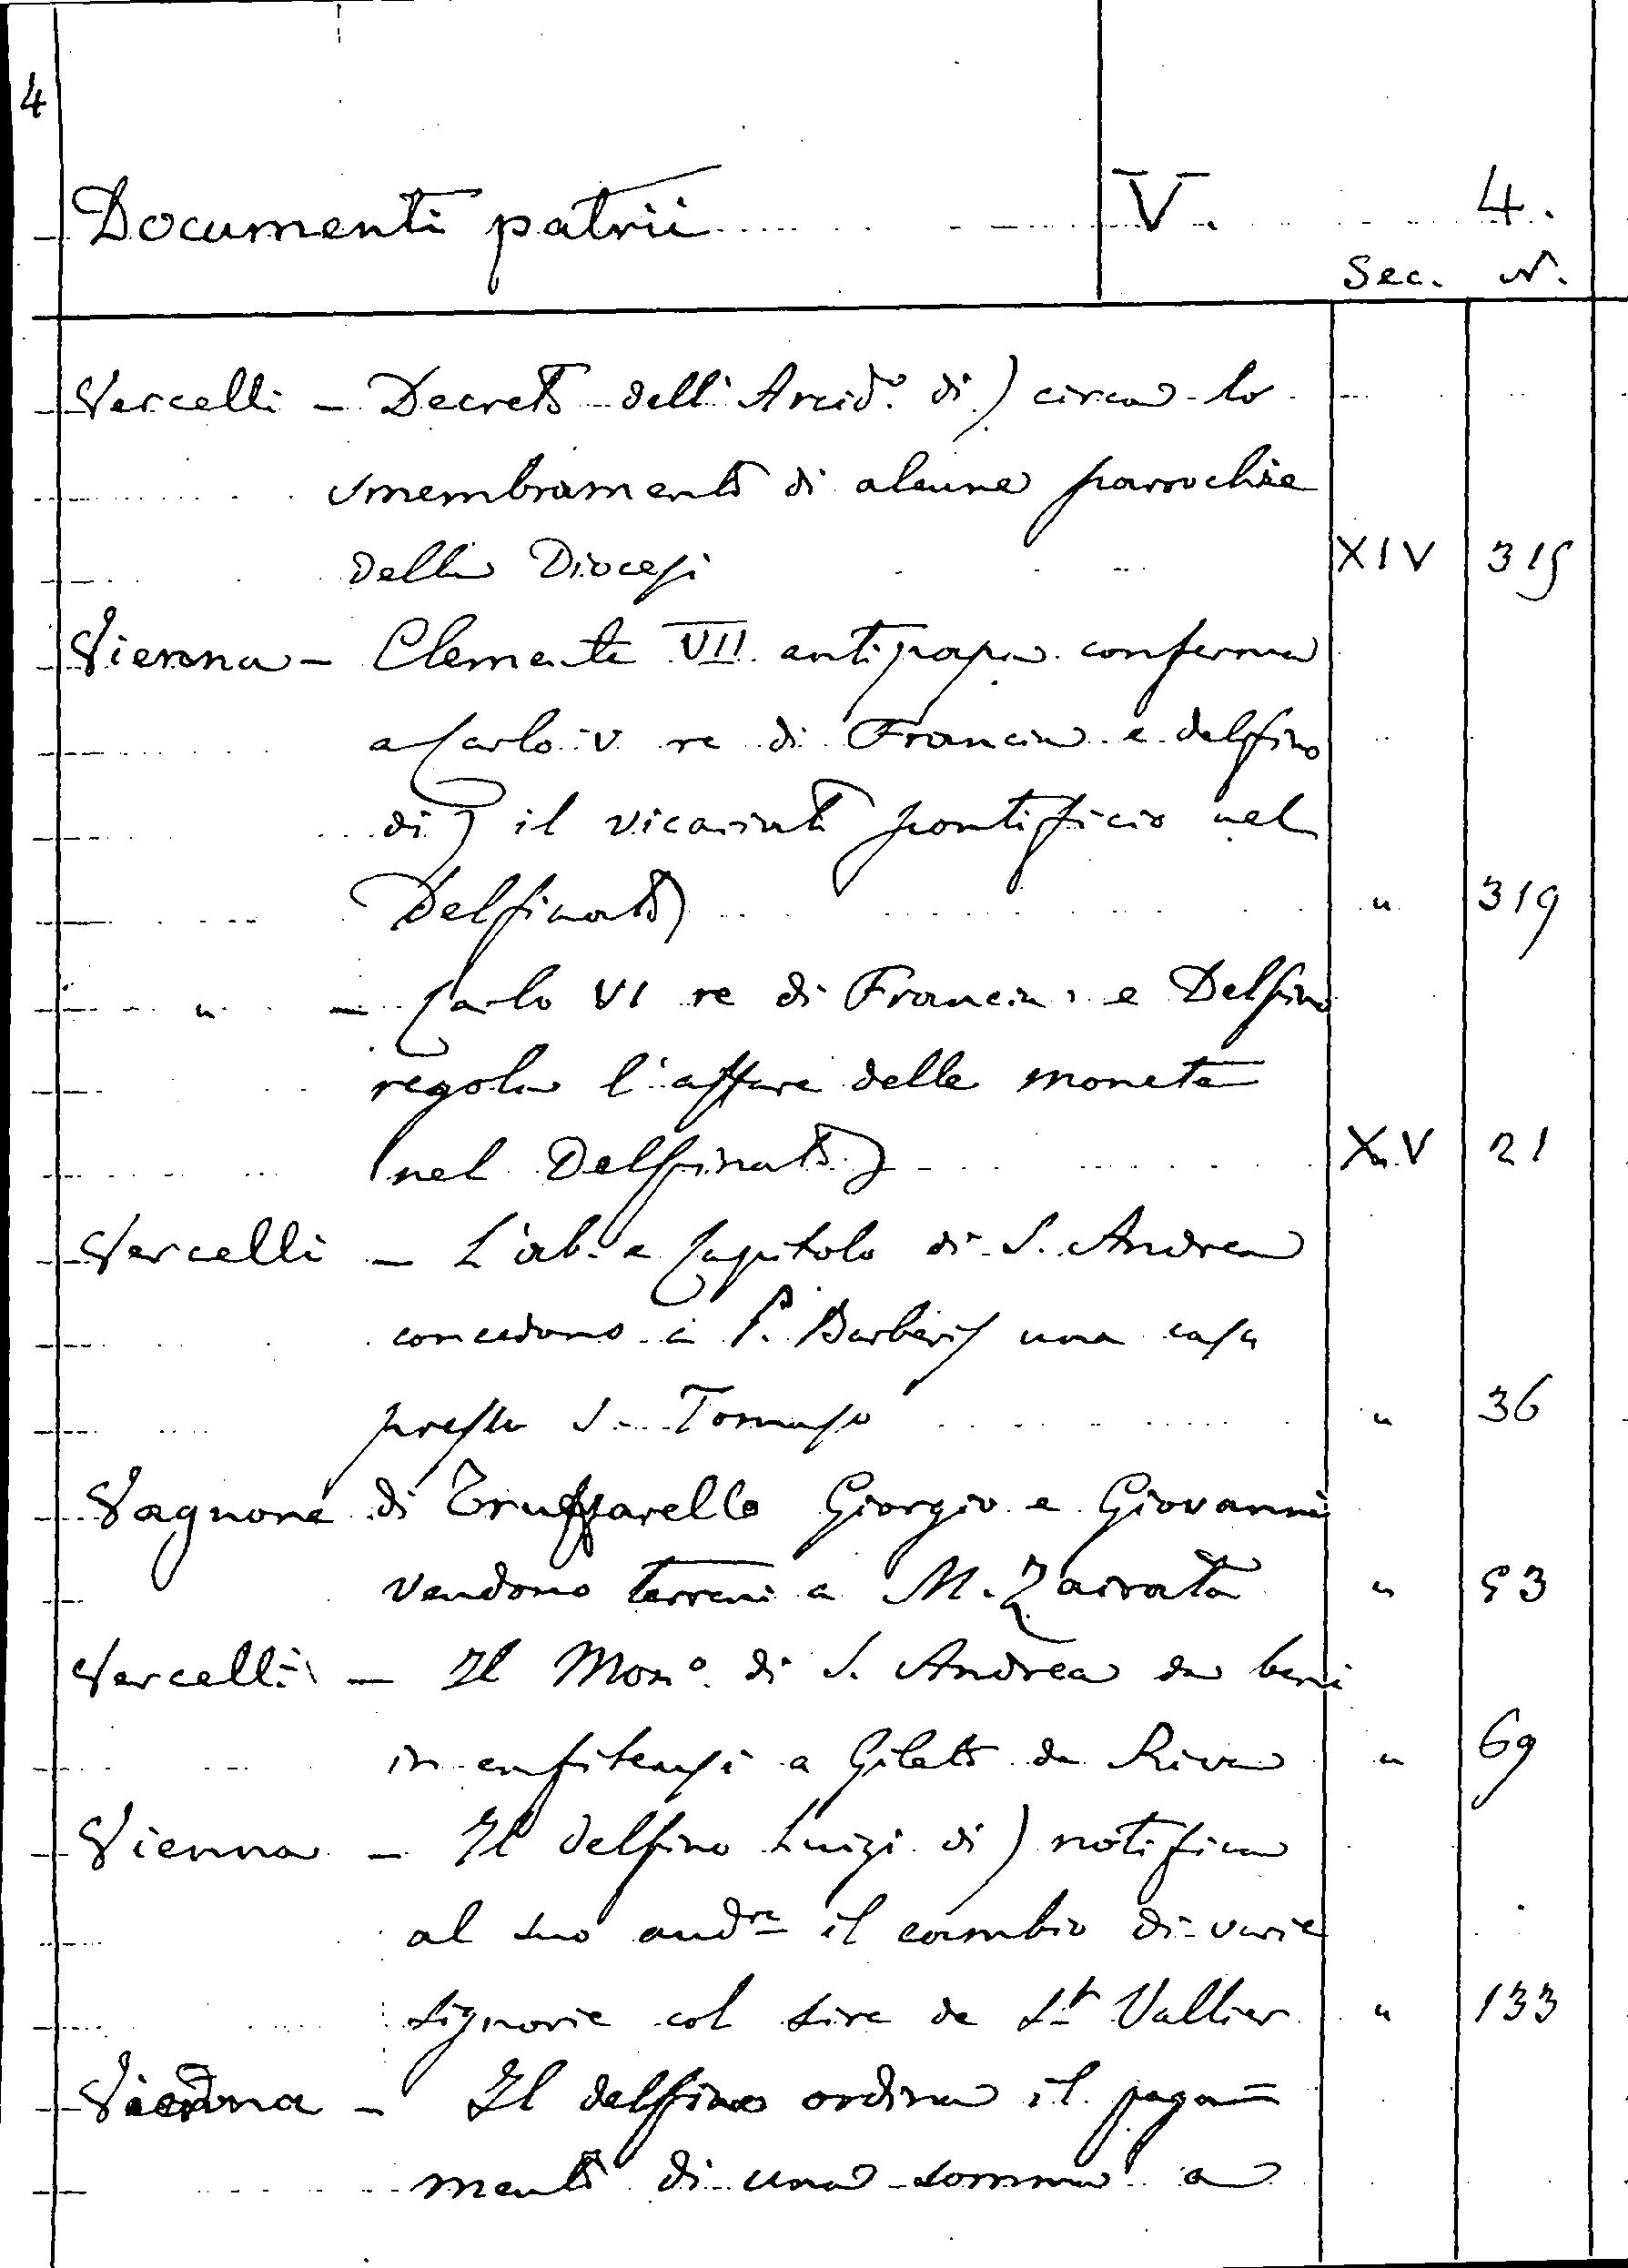 4
Documenti patrii V. 4.
Sec. N.
Vercelli – Decreto dell'Arcid.º di) circa lo
smembramento di alcune parrochie
della Diocesi XIV 315
Vienna – Clemente VII antipapa conferma
a Carlo V re di Francia e delfino
di) il vicariato pontificio nel
Delfinato) " 319
" – Carlo VI re di Francia e Delfino
regola l'affare delle monete
nel Delfinato) XV 21
Vercelli – L'ab. e Capitolo di S. Andrea
concedono a P. Barberis una casa
presso S. Tomaso " 36
Vagnone di Truffarello Giorgio e Giovanni
vendono terreni a M. Zairata " 53
Vercelli – Il Mon.º di S. Andrea da beni
in enfiteusi a Gileto da Riva " 69
Vienna – Il delfino Luigi di) notifica
al suo aud.re il cambio di varie
signorie col sire de St Vallier " 133
Vienna – Il delfino ordina il paga=
mento di una somma a